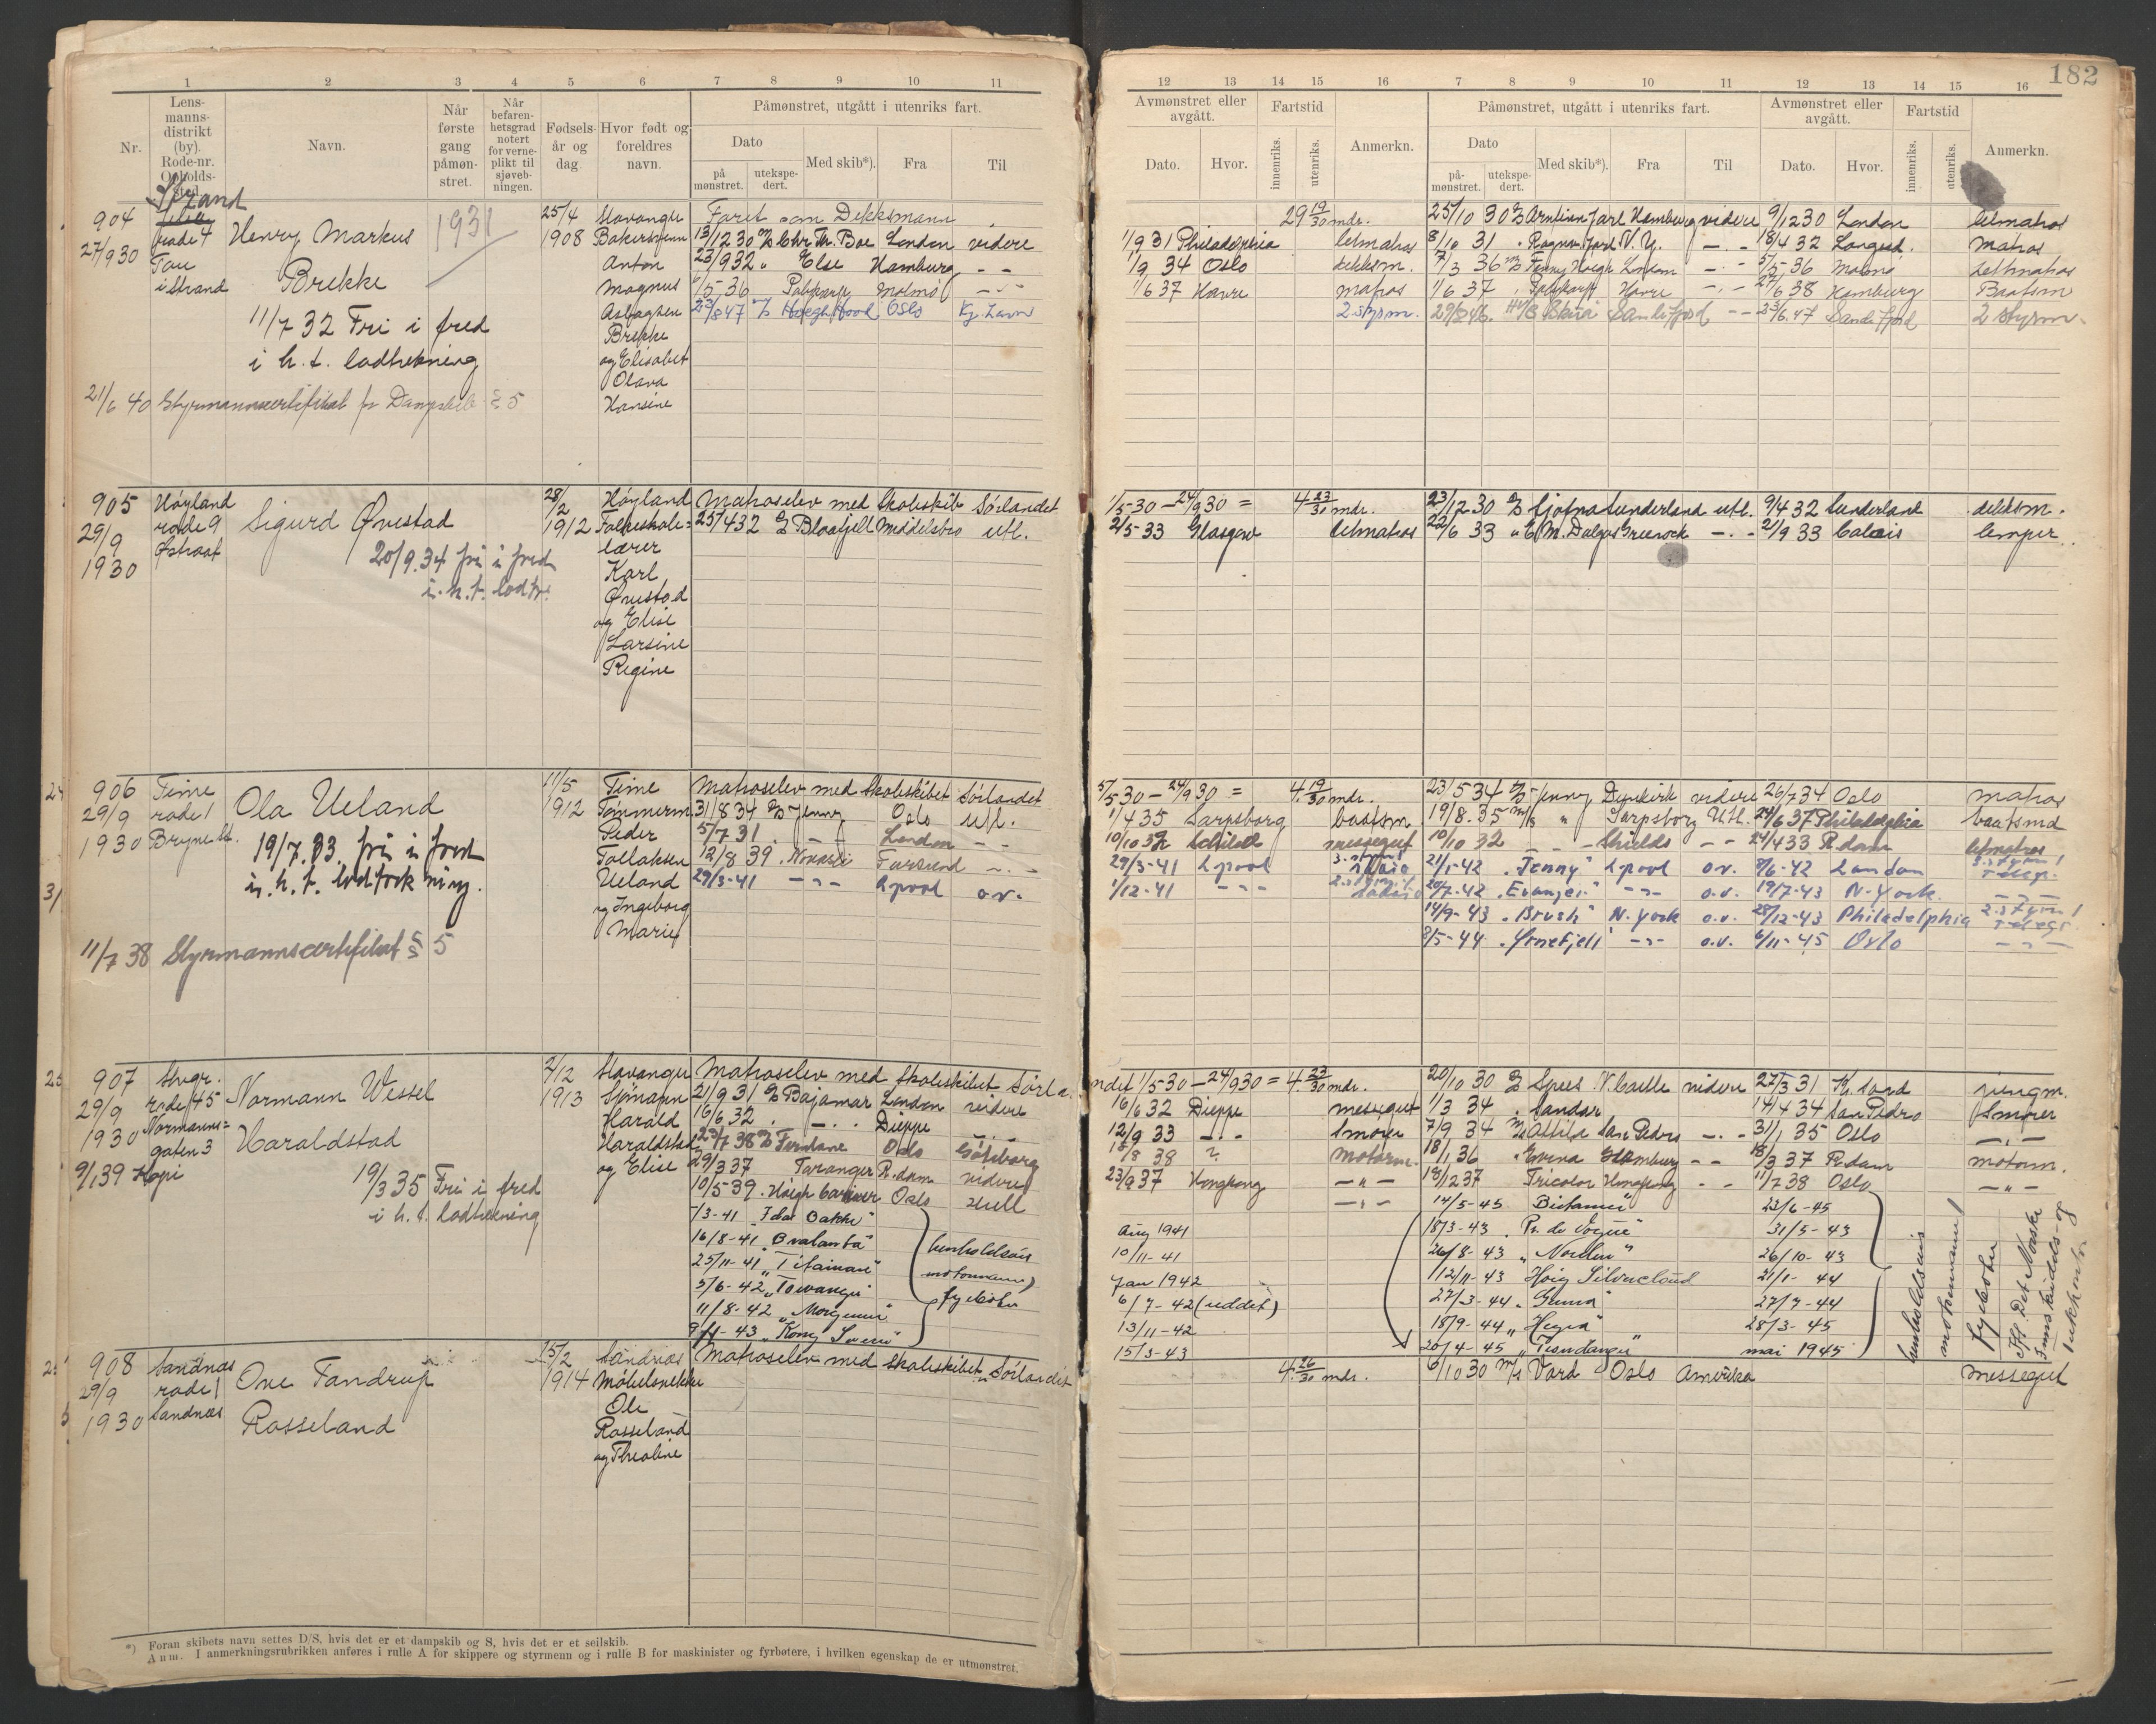 182
1 2 3 4 5 6 7 8 9 10 11
12 13 14 15 16 7 8 9 10 11 12 13 14 15 16
Nr.
Lens-
manns-
distrikt
(by).
Rode-nr.
Opholds-
sted.
Navn.
Når
første
gang
påmøn-
stret.
Når
befaren-
hetsgrad
notert
for verne-
plikt til
sjøveb-
ningen.
Fødsels-
år og
dag.
Hvor født og
foreldres
navn.
Påmønstret, utgått i utenriks fart.
Dato
på
mønstret.
utekspe-
dert.
Med skib*).
Fra
Til
Avmønstret eller
avgått.
Dato.
Hvor.
Fartstid
innenriks.
utenriks.
Anmerkn.
Påmønstret, utgått i utenriks fart.
Dato
på-
mønstret.
utekspe-
dert.
Med skib*).
Fra
Til
Avmønstret eller
avgått.
Dato.
Hvor.
Fartstid
innenriks.
utenriks.
Anmerkn.
904
27/9 30
Strand
rode 4
Tau
i Strand
Henry Markus
Brekke
1931
11/7 32 Fri i fred
i h. t. lodtrekning
21/6 40 Styrmannscertifikat for Dampskib § 5
25/4
1908
Stavanger
Bakersvenn
Anton
Magnus
Aslagsen
Brekke
og Elisabet
Olava
Hansine
Faret som Dekksmann
13/12 30 Chr. Th. Boe London videre
23/9 32 " Else Hamburg - -
1/5 36 Malmø - " -
23/8 47 Høegh Hood Oslo
29 19/30 mdr.
1/9 31 Philadelphia letmatros
1/9 34 Oslo dekksm.
1/6 37 Havre matros
2 styrm.
25/10 30 Jarl Hamburg videre 9/12 30 London letmatros
8/10 31 Ragnv. Jarl N. Y. - " - 18/4 32 matros
7/3 36 Fenny Høegh - " - 5/5 36 Malmø Lettmatros
1/6 37 Havre - " - 27/6 38 Hamburg Baatsm
Sandefjord - - 23/6.47 Sandefjord 2 styrm.
905
29/9
1930
Høyland
rode 9
Østraat
Sigurd Øvestad
20/9.34 fri i fred
i. h. t. lodtr.
28/2
1912
Høyland
Folkeskole=
lærer
Karl
Øvestad
og Elise
Larsine
Regine
Matroselev med Skoleskib Sørlandet
25/4 32 Blaafjell Middelsbro utl.
1/5-30 - 24/9 30 = 4 23/30 mdr.
2/5 33 Glasgow letmatros
23/12.30 Sunderland utl. 9/4 32 Sunderland dekksm.
22/6 33 " E. M. Dalgas Greenock - " - 21/9 33 Calais lemper
906
29/9
1930
Time
rode 1
Bryne st.
Ola Ueland
19/7.33. fri i fred
i. h. t. lodtrekning.
11/7 38 Styrmannscertifikat § 5
11/5
1912
Time
Tømmerm.
Peder
Tollaksen
Ueland
og Ingeborg
Marie
Matroselev med Skoleskibet Sørlandet
31/8 34 Jenny Oslo utl.
5/7 31 . - London - -
12/8 39 . Novasli Farsund - " -
29/3-41 - " - Lpool o.v.
5/5 30 - 24/9 30 = 4. 19/30 mdr.
1/4 35 Sarpsborg baatsm.
10/10 32 Schields messegut
29/3-41 Lpool
1/12-41 - " -
23/5 34 Jenny Dunkirk videre 26/7 34 Oslo matros
19/8.35 " Sarpsborg Utl. 24/6 37 Philadelphia baatsmd
10/10 32 - - Shields - - 24/4 33 R.dam letmatros
21/1-42 . "Fenny" Lpool o.v. 8/6-42 London 3.styrm/Telegr.
20/7-42 . "Evanger" - " - o.v. 19/7-43 N-York. - " -
14/9-43 . "Brush" N. York o.v. 28/12-43 Philadelphia 2.styrm/Telegr.
8/5-44 . "Ørnefjell" - " - o.v. 6/11-45 Oslo - " -
907
29/9
1930
9/1 39 Kopi
Stvgr.
rode 45
Normanns=
gaten 3
Normann Wessel
Haraldstad
19/3 35 Fri i fred
i h. t. lodtrekning
2/12
1913
Stavanger
Sjømann
Harald
Haraldstad
og Elise
Matroselev med Skoleskibet Sørlandet
21/9 31 Bajamar London videre
16/6 32 . - . . Dieppe - " -
23/7 38 Fernlane Oslo Göteborg
29/3 37 Taranger R.dam videre
10/5 39 . Høegh Carrier Oslo Hull
/3-41 "Ida Bakke"
16/8-41 "
25/11-41 "Titanian"
5/6-42 "Towanger"
11/8-42 "Morgenen"
"Kong Sverre"
henholdsvis
motormann/
fyrbøter
1/5 30 - 24/9 30 = 4. 23/30 mdr.
16/6 32 Dieppe messegut
12/9 33 - " - Smører
15/8 38 ? Motorm.
23/9 37 Hongkong - " -
- " -
Aug 1941
10/11-41
Jan 1942
6/7-42 (reddet)
13/11-42
15/3-43
20/10 30 Spes N.Castle videre 27/3 31 Kr. sand jungm.
1/3 34 . Sandar 14/4 34 San Pedro Smører
7/9 34 Attila San Pedro - " - 31/1 35 Oslo - " -
18/1 36 . Evina Hamburg - - 18/3 37 R.dam motorm.
18/12 37 Tricolor Hongkong - - 11/7 38 Oslo - " -
14/5-45 23/6-45
18/3-43 . "P. de Vogüe" 31/5-43
26/8-43 "Norden" 26/10-43
12/11-43 Høeg Silvercloud 21/1-44
27/3-44 " 27/7-44
18/9-44 "Hegra" 28/3-45
20/4-45 " mai 1945
henholdsvis
motormann/
fyrbøter
Ifl. Det Norske
908
29/9
1930
Sandnæs
rode 1
Sandnæs
One Tandrup
Rosseland
25/2
1914
Sandnæs
Møbelsnekker
Ole
Rosseland
og Theoline
Matroselev med Skoleskibet Sørlandet
4. 26/30 mdr. 6/10 30 Vard Oslo Amerika messegut
*) Foran skibets navn settes D/S, hvis det er et dampskib og S, hvis det er et seilskib.
Anm. I anmerkningsrubrikken anføres i rulle A for skippere og styrmenn og i rulle B for maskinister og fyrbøtere, i hvilken egenskap de er utmønstret.